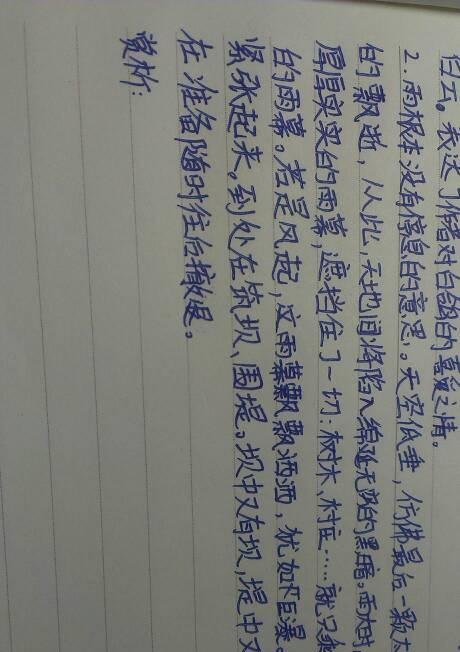 白云。表达了作者对白鸽的喜爱之情。
2.雨根本没有停息的意思。天空低垂,仿佛最后一颗太
的飘逝,从此,天地间将陷入绵延无际的黑暗。雨大时,
厚厚实实的雨幕,遮挡住了一切:树木、村庄……就只剩
的雨幕。若是风起,这雨幕飘飘洒洒,犹如巨瀑。
紧张起来。到处在筑坝、围堤。坝中又有坝,堤中又
在准备随时往后撤退。
赏析: